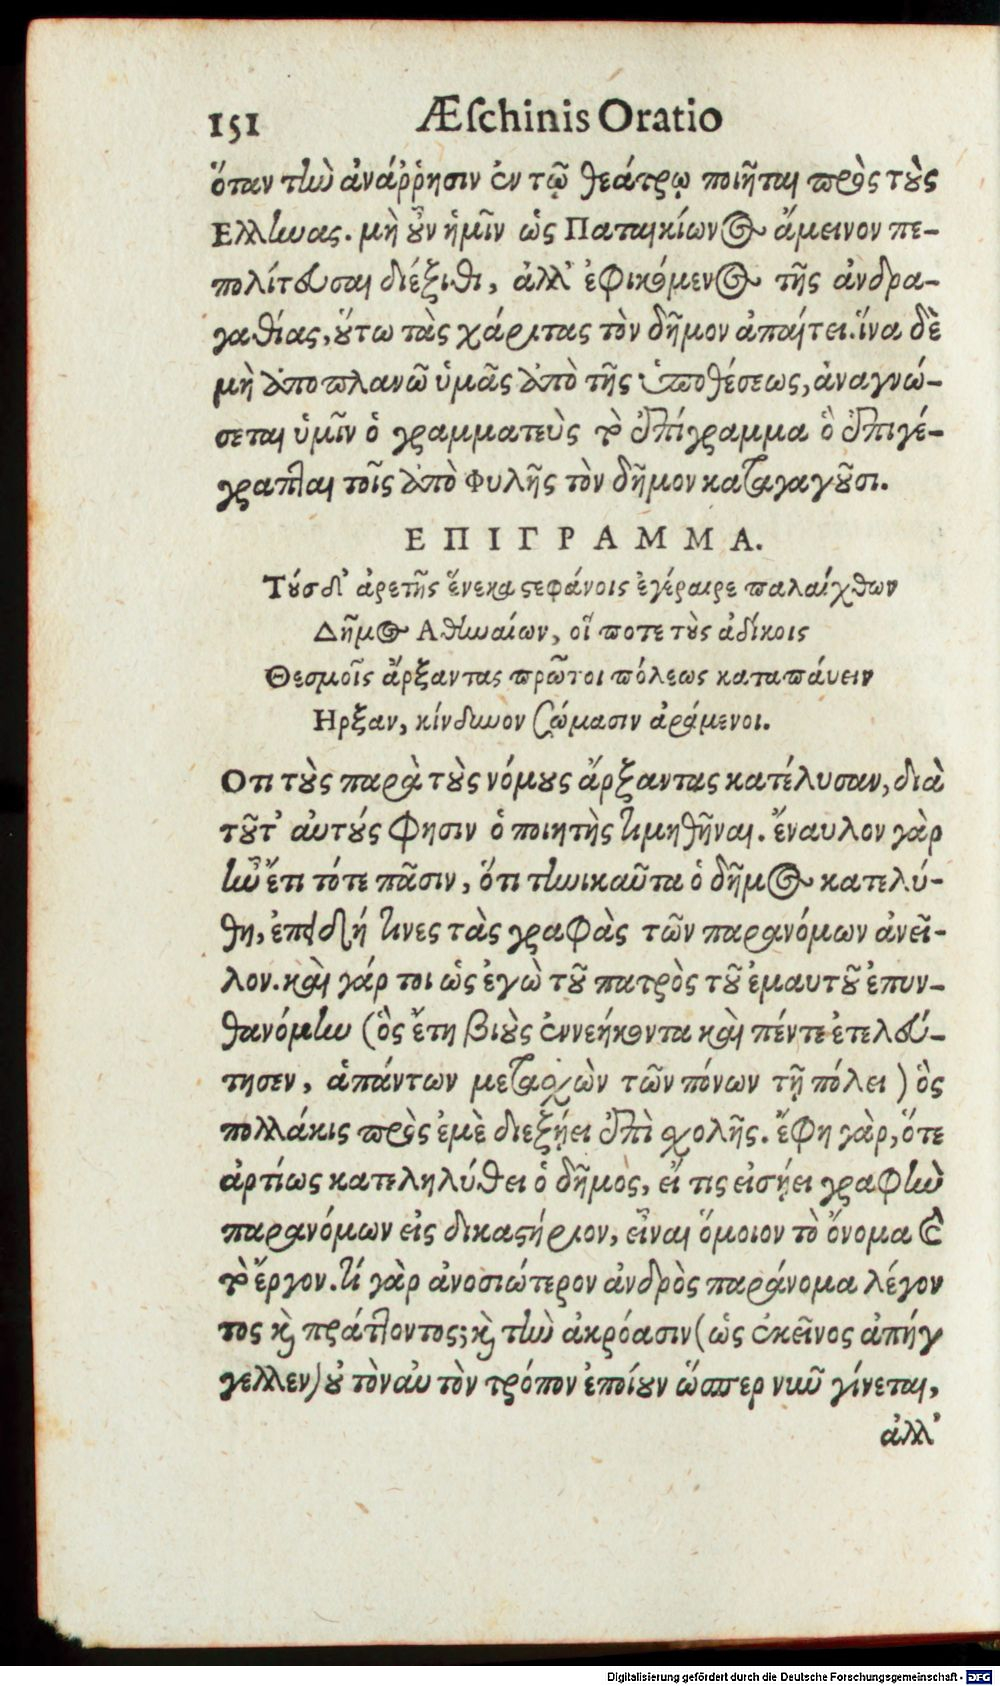 151 Æſchinis Oratio
ὅταν τὴν ἀνάῤῥησιν ἐν τῷ θεάτρῳ ποιῆται πρὸς τοὺς
Ελληνας. μὴ οὖν ἡμῖν ὡς Παταικίων@ ἄμεινον πε-
πολίτευσαι διέξιθι, ἀλλ' ἐφικόμενος τῆς ἀνδρα-
γαθίας, οὕτω τὰς χάριτας τὸν δῆμον ἀπαίτει. ἵνα δὲ
μὴ ἀποπλανῶ ὑμᾶς ἀπὸ τῆς ὑποθέσεως, ἀναγνώ-
σεται ὑμῖν ὁ γραμματεὺς τὸ ἐπίγραμμα ὃ ἐπιγέ-
γραπται τοῖς ἀπὸ Φυλῆς τὸν δῆμον καταγαγοῦσι.
ΕΠΙΓΡΑΜΜΑ.
Τούσδ' ἀρετῆς ἕνεκα στεφάνοις ἐγέραιρε παλαίχθων
Δῆμος Αθηναίων, οἵ ποτε τοὺς ἀδίκοις
Θεσμοῖς ἄρξαντας πρῶτοι πόλεως καταπάυειν
Ηρξαν, κίνδυνον σώμασιν ἀράμενοι.
Οτι τοὺς παρὰ τοὺς νόμους ἄρξαντας κατέλυσαν, διὰ
τοῦτ' αὐτούς φησιν ὁ ποιητὴς τιμηθῆναι. ἔναυλον γὰρ
ἦν ἔτι τότε πᾶσιν, ὅτι τηνικαῦτα ὁ δῆμος κατελύ-
θη, ἐπειδή τινες τὰς γραφὰς τῶν παρανόμων ἀνεῖ-
λον. καὶ γάρ τοι ὡς ἐγὼ τοῦ πατρὸς τοῦ ἐμαυτοῦ ἐπυν-
θανόμην (ὃς ἔτη βιοὺς ἐννεήκοντα καὶ πέντε ἐτελεύ-
τησεν, ἁπάντων μετασχὼν τῶν πόνων τῇ πόλει) ὃς
πολλάκις πρὸς ἐμὲ διεξῄει ἐπὶ σχολῆς. ἔφη γὰρ, ὅτε
ἀρτίως κατεληλύθει ὁ δῆμος, εἴ τις εἰσῄει γραφὴν
παρανόμων εἰς δικαστήριον, εἶναι ὅμοιον τὸ ὄνομα καὶ
τὸ ἔργον. τί γὰρ ἀνοσιώτερον ἀνδρὸς παράνομα λέγον
τος καὶ πράττοντος; καὶ τὴν ἀκρόασιν (ὡς ἐκεῖνος ἀπήγ
γελλεν) οὐ τὸν αὐτὸν τρόπον ἐποίουν ὥσπερ νῦν γίνεται,
ἀλλ'
Digitalisierung gefördert durch die Deutsche Forschungsgemeinschaft - DFG